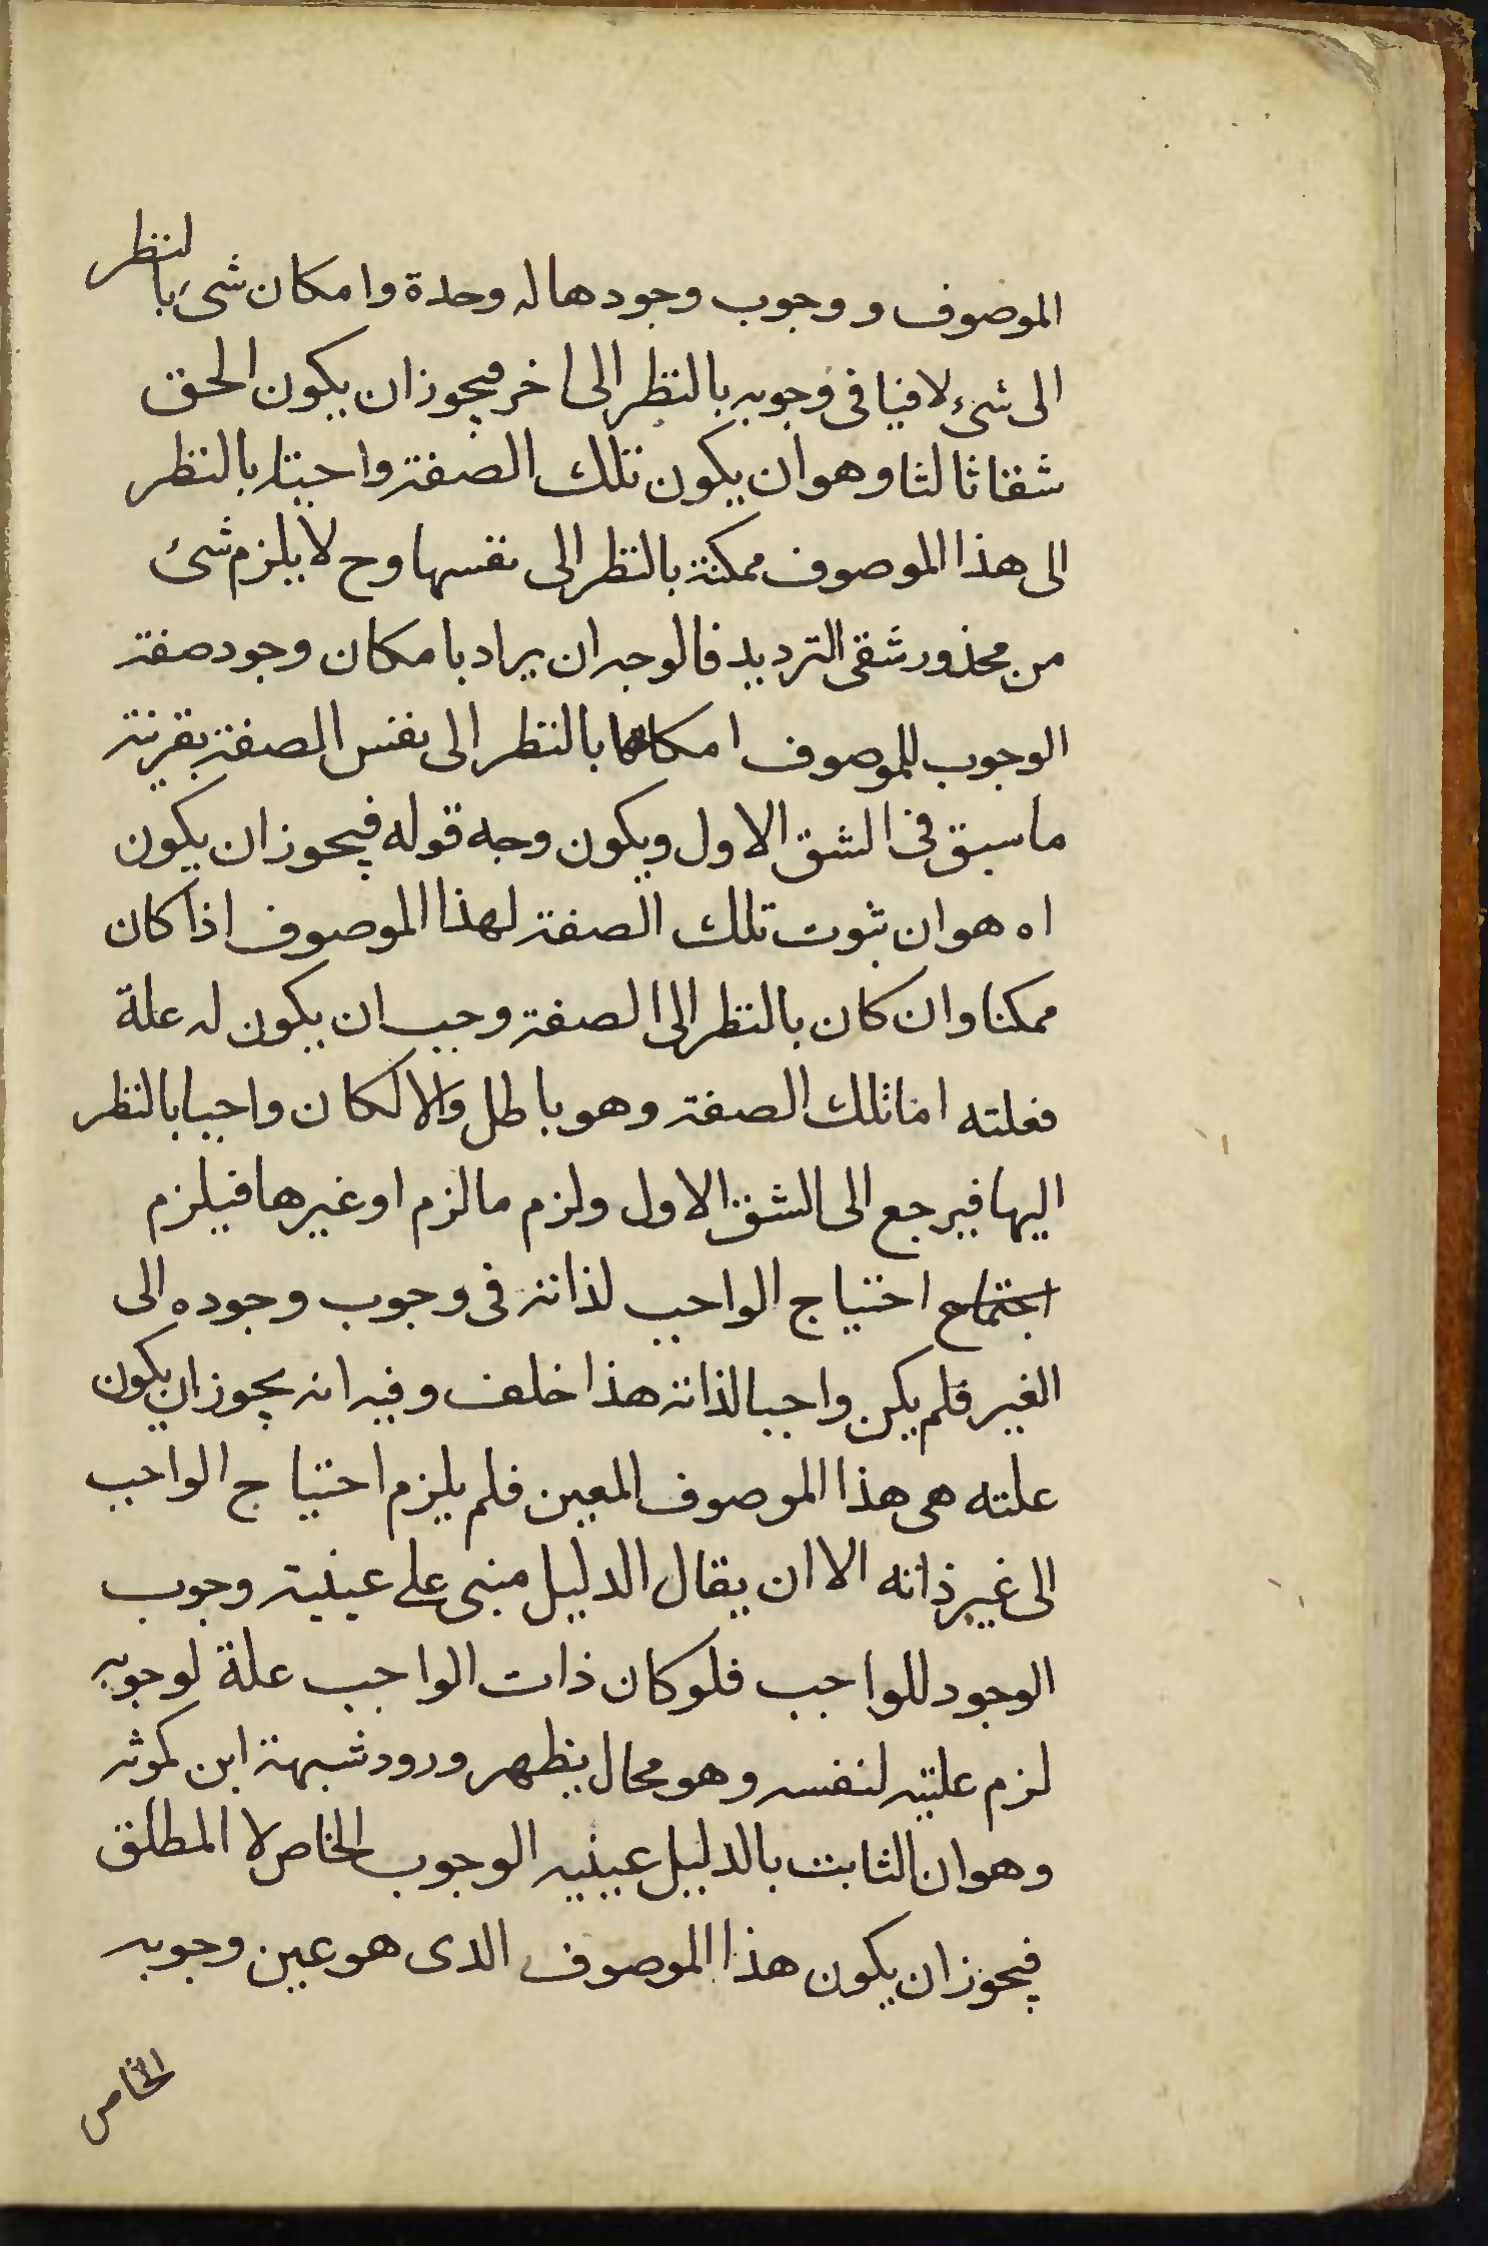 الموصوف و وجوب وجودها له وحدة وامكان شئ بالنظر
الى شئ لا فيا فى وجوبه بالنظر الى اخر فيجوز ان يكون الحق
شقا ثالثا وهو ان يكون تلك الصفة واجبتا بالنظر
الى هذا الموصوف ممكنة بالنظر الى نفسها وح لا يلزم شئ
من محذور شقى الترديد فالوجه ان يراد بامكان وجود صفة
الوجوب للموصوف امكانها بالنظر الى نفس الصفة بقرينة
ما سبق فى الشق الاول ويكون وجه قوله فيجوز ان يكون
اه هو ان ثبوت تلك الصفة لهذا الموصوف اذا كان
ممكنا وان كان بالنظر الى الصفة وجب ان يكون له علة
فعلته اما تلك الصفة وهو باطل والا لكان واجبا بالنظر
اليها فيرجع الى الشق الاول ولزم ما لزم او غيرها فيلزم
اجتماع احتياج الواجب لذاته فى وجوب وجوده الى
الغير فلم يكن واجبا لذاته هذا خلف وفيه انه يجوز ان يكون
علته هى هذا الموصوف المعين فلم يلزم احتياج الواجب
الى غير ذاته الا ان يقال الدليل مبنى على عينية وجوب
الوجود للواجب فلو كان ذات الواجب علة لوجوبه
لزم عليته لنفسه وهو محال يظهر ورود شبهة ابن كمونه
وهو ان الثابت بالدليل عينيه الوجوب الخاص لا المطلق
فيجوز ان يكون هذا الموصوف الدى هو عين وجوبه
الخاص